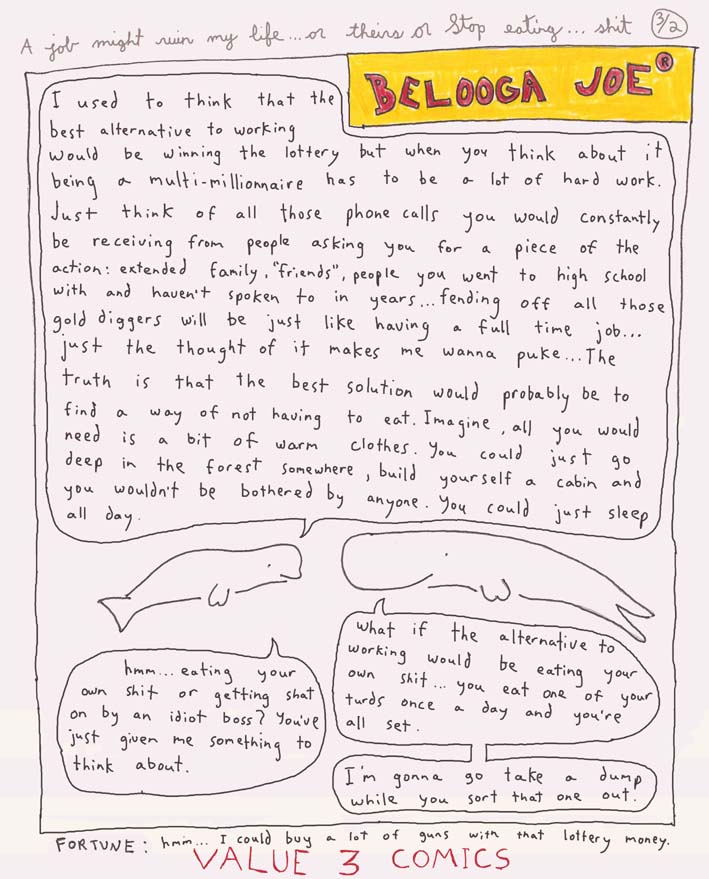 A job might ruin my life...or theirs or Stop eating... shit 3/2
BELOOGA JOE®
I used to think that the
best alternative to working
would be winning the lottery but when you think about it
being a multi-millionnaire has to be a lot of hard work.
Just think of all those phone calls you would constantly
be receiving from people asking you for a piece of the
action: extended family, "friends", people you went to high school
with and haven't spoken to in years... fending off all those
gold diggers will be just like having a full time job...
just the thought of it makes me wanna puke... The
truth is that the best solution would probably be to
find a way of not having to eat. Imagine, all you would
need is a bit of warm clothes. You could just go
deep in the forest somewhere, build yourself a cabin and
you wouldn't be bothered by anyone. You could just sleep
all day.
what if the alternative to
working would be eating your
own shit... you eat one of your
turds once a day and you're
all set.
hmm... eating your
own shit or getting shat
on by an idiot boss? You've
just given me something to
think about.
I'm gonna go take a dump
while you sort that one out.
FORTUNE: hmm... I could buy a lot of guns with that lottery money.
VALUE 3 COMICS